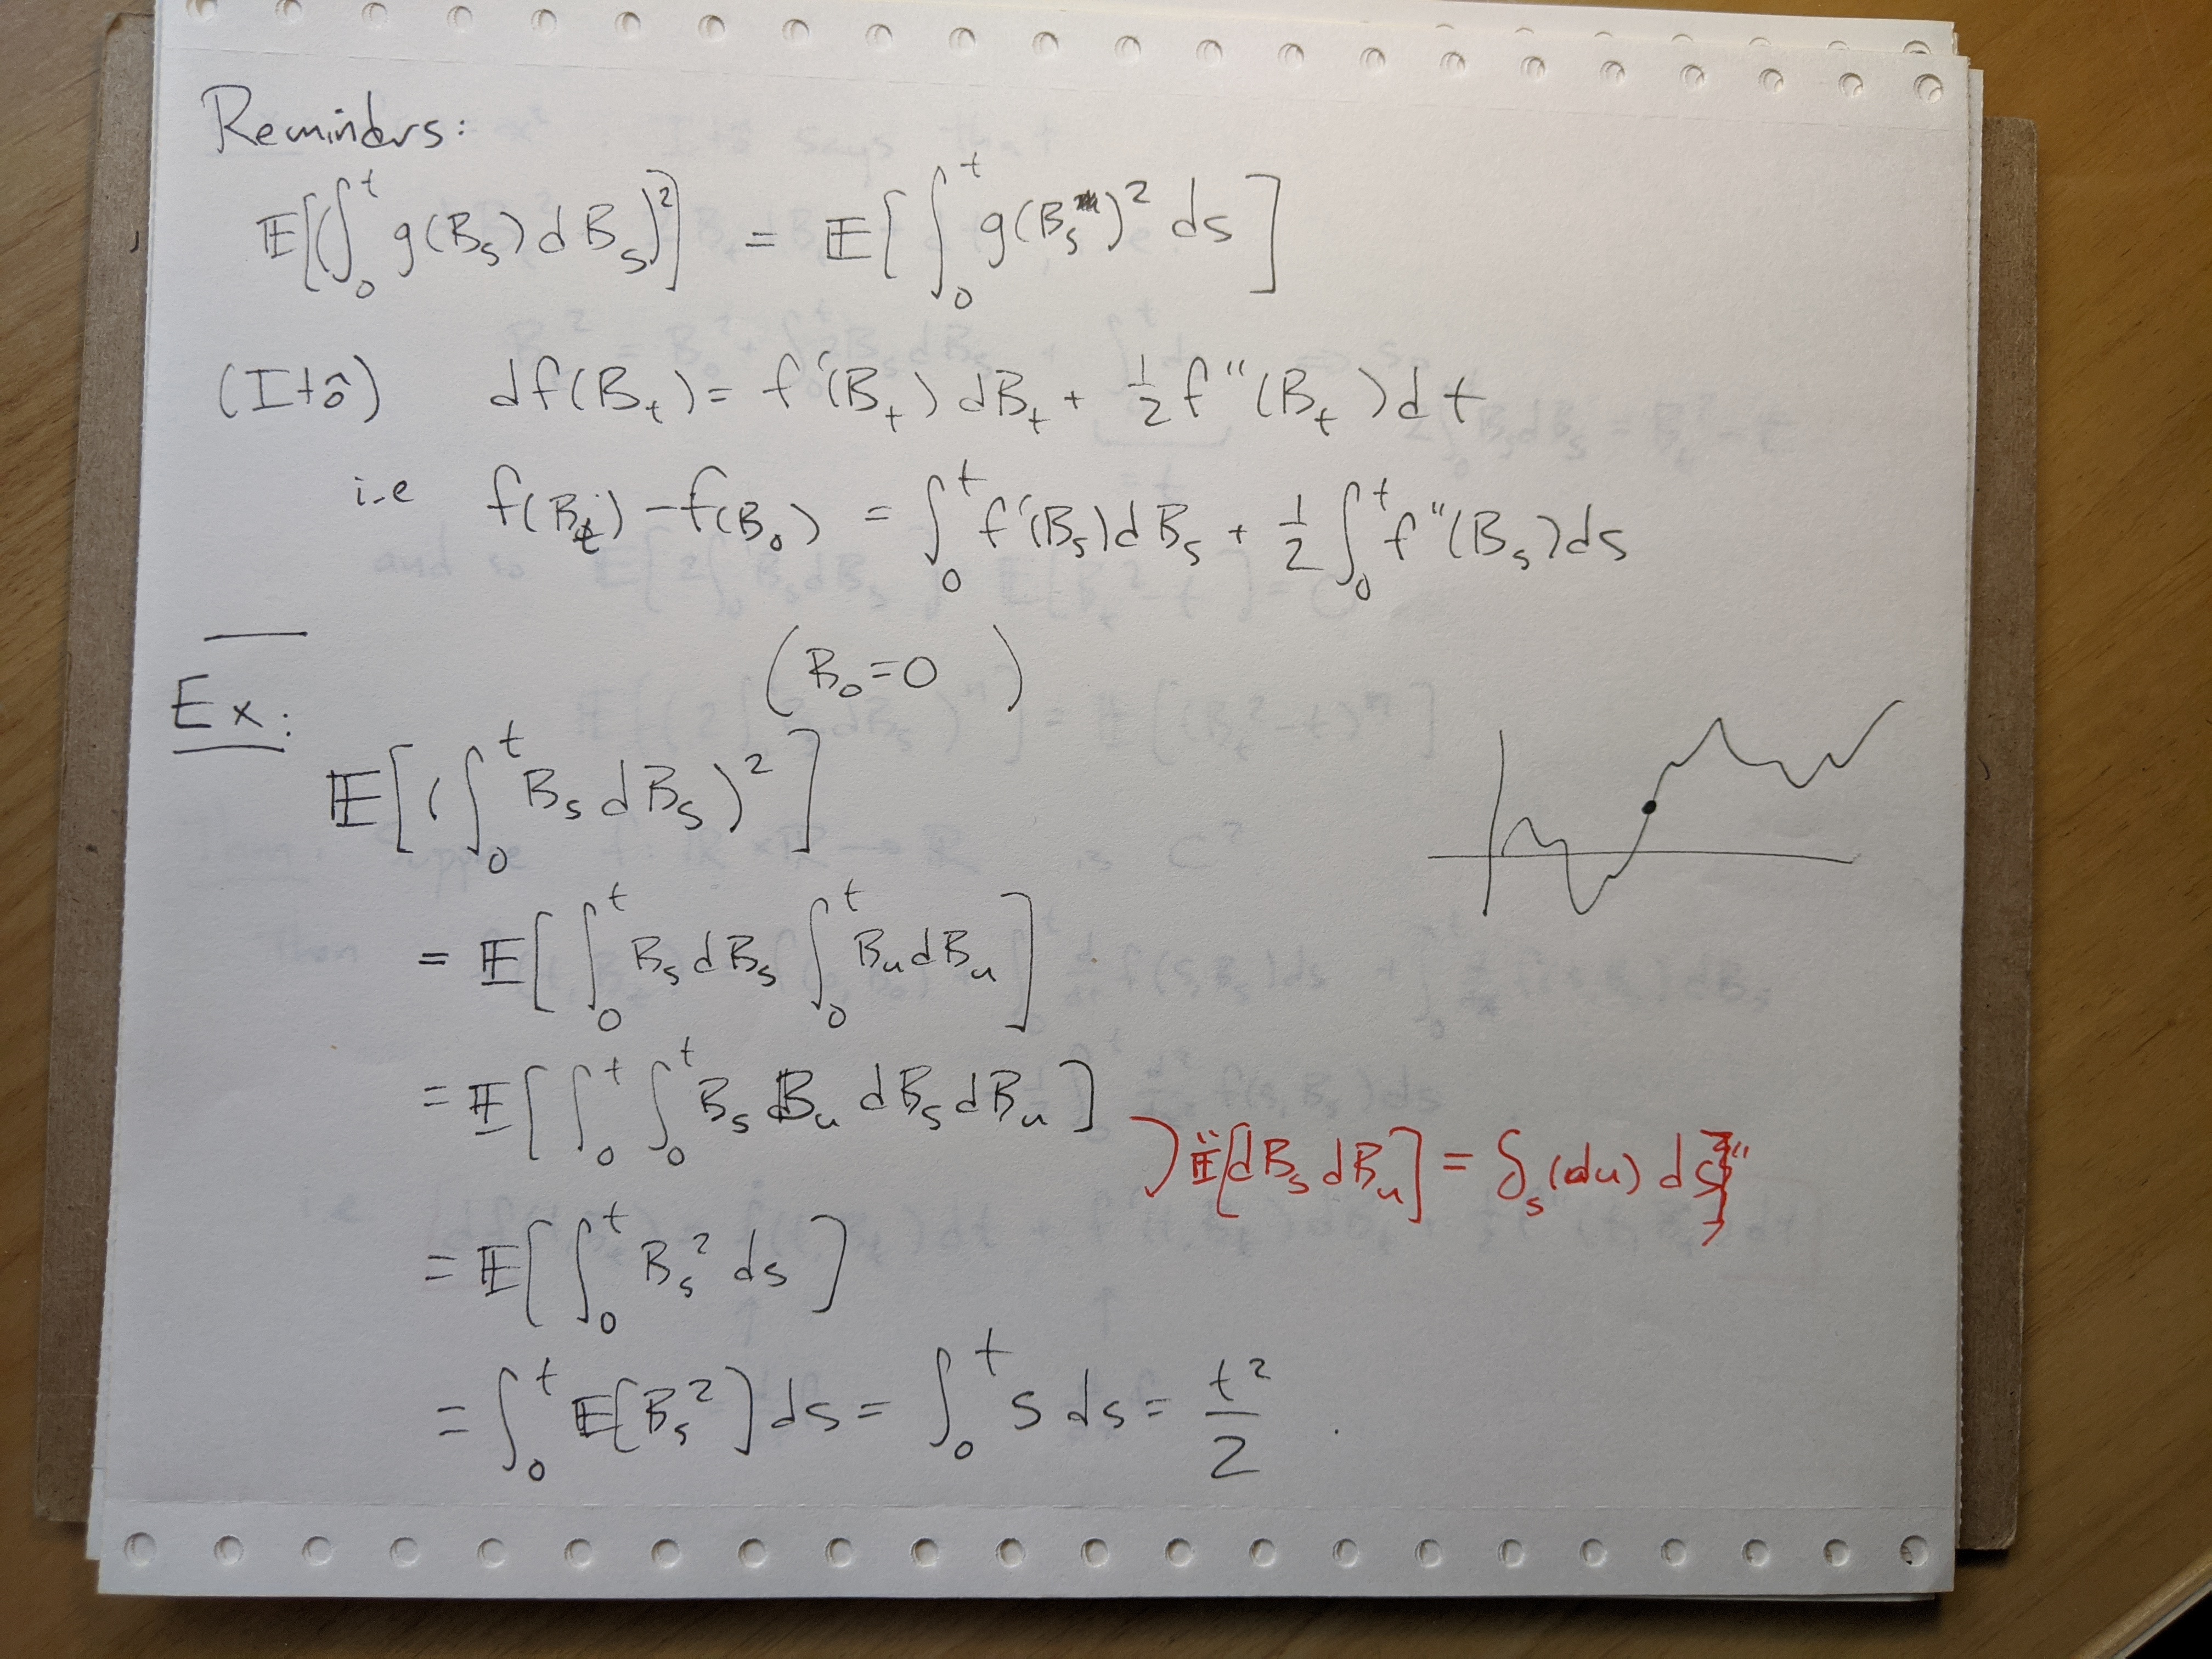 Reminders:
𝔼[(∫₀ᵗ g(Bₛ) dBₛ)²] = 𝔼[∫₀ᵗ g(Bₛ)² ds]
(Itô) df(Bₜ) = f'(Bₜ) dBₜ + ½ f''(Bₜ) dt
i.e f(Bₜ) - f(B₀) = ∫₀ᵗ f'(Bₛ) dBₛ + ½ ∫₀ᵗ f''(Bₛ) ds
(B₀ = 0)
Ex:
𝔼[(∫₀ᵗ Bₛ dBₛ)²]
= 𝔼[∫₀ᵗ Bₛ dBₛ ∫₀ᵗ Bᵤ dBᵤ]
= 𝔼[∫₀ᵗ ∫₀ᵗ Bₛ Bᵤ dBₛ dBᵤ]
) "𝔼[dBₛ dBᵤ] = δₛ(du) ds"
= 𝔼[∫₀ᵗ Bₛ² ds]
= ∫₀ᵗ 𝔼[Bₛ²] ds = ∫₀ᵗ s ds = t²/2 .